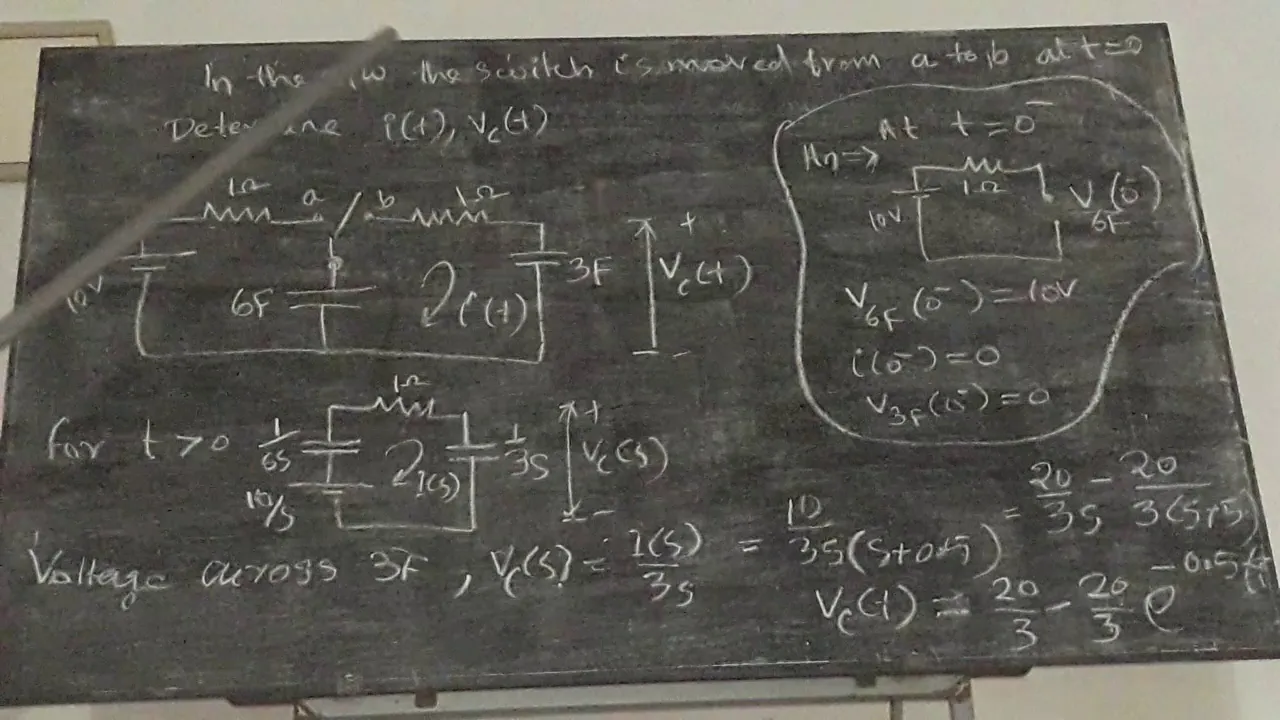 In the the switch is moved from a to b at t=0
Determine i(t), Vc(t)
1Ω a b 1Ω
10V 6F i(t) 3F + Vc(t) -
At t=0⁻
10V 1Ω V(0⁻)
6F
V6F(0⁻)=10V
i(0⁻)=0
V3F(0⁻)=0
for t>0
1Ω
1/6s 10/s I(s) 1/3s + Vc(s) -
Voltage across 3F, Vc(s) = I(s)/3s = 10/3s(s+0.5)
= 20/3s - 20/3(s+.5)
Vc(t) = 20/3 - 20/3 e^-0.5t